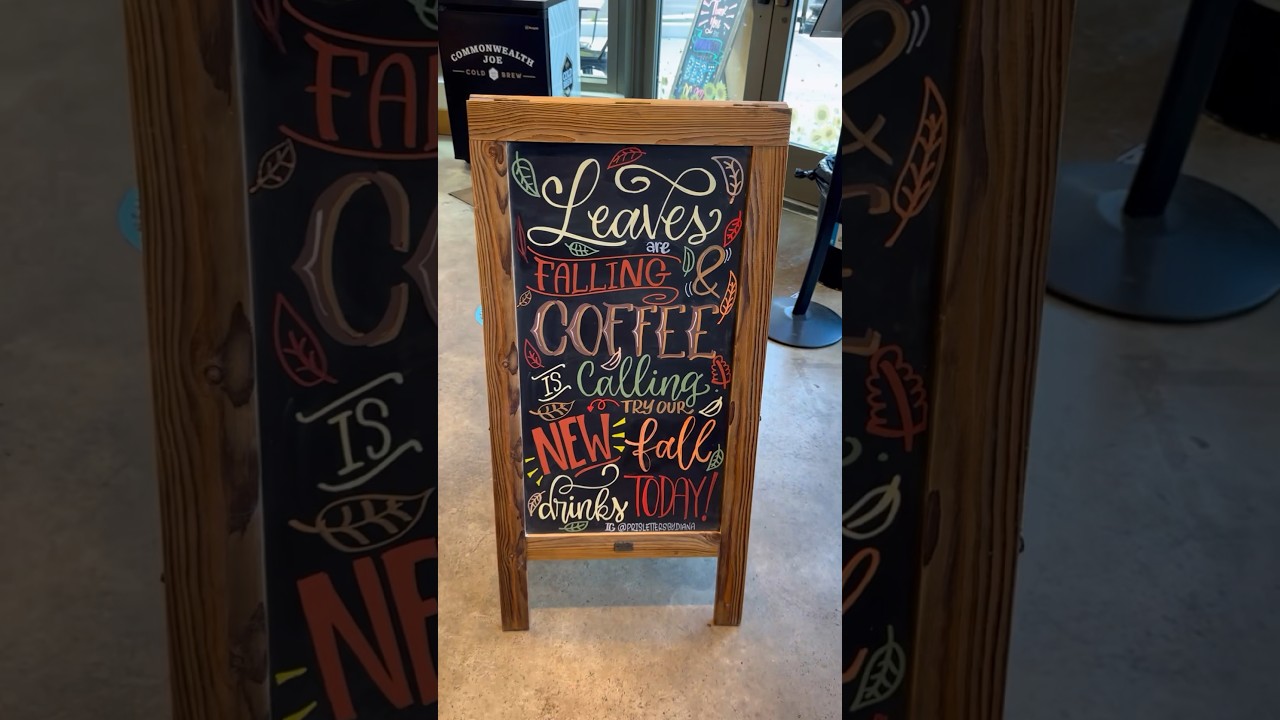 COMMONWEALTH
JOE
COLD BREW
Leaves
are
FALLING &
COFFEE
IS Calling
TRY OUR
NEW fall
drinks TODAY!
IG @PRISLETTERSBYDIANA
FA
C
IS
NEW
&